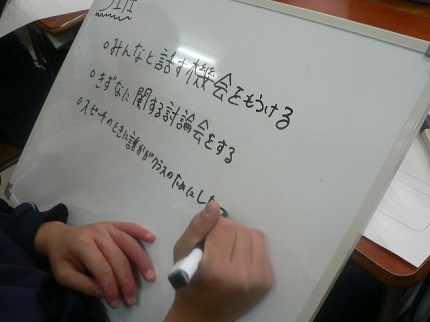 ○みんなと話す機会をもうける
○きずなに関する討論会をする
○スピーチのときに誰かがクラスのためにした